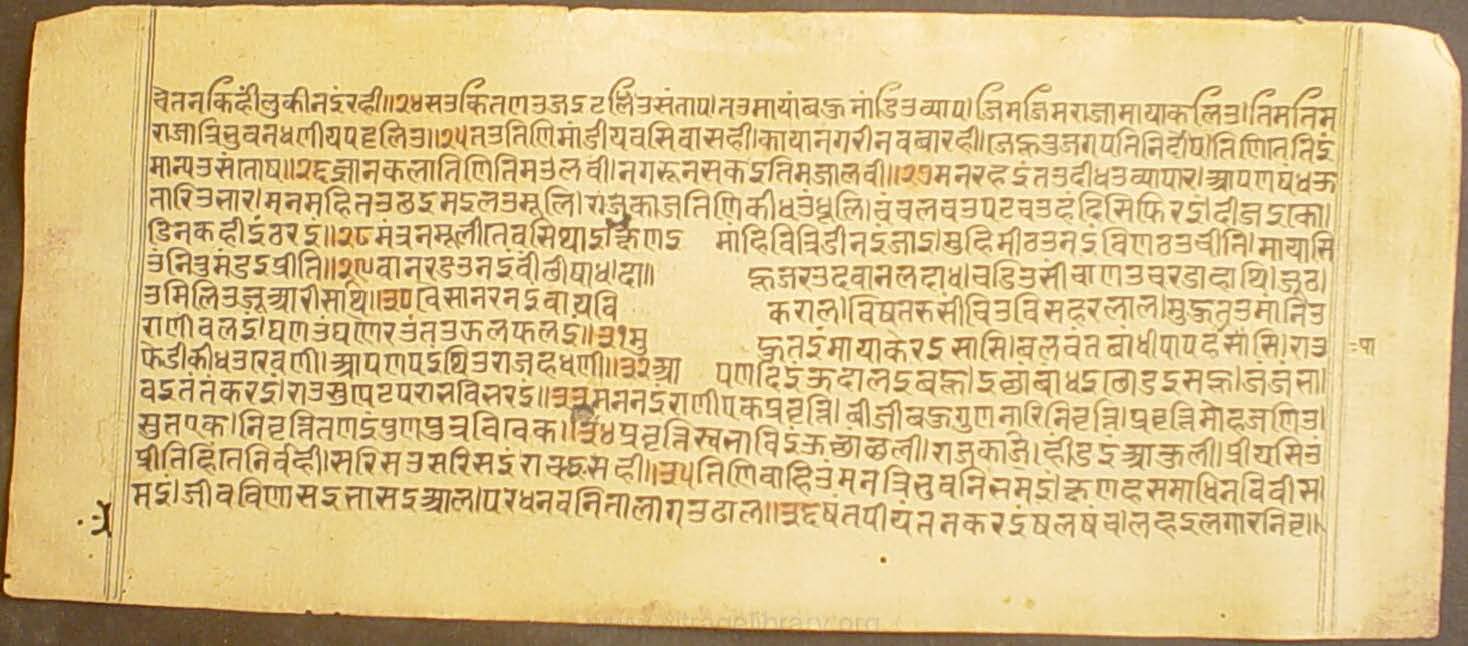 चेतन किहीं लुकी नइं रही॥२४ सउकि तणउ जइ टलिउ संताप। तउ मायां बहु मांडिउ व्याप। जिम जिम राजा माया कलिउ। तिम तिम
राजा त्रिभुवन धणीय पट्टलिउ॥२५ तउ तिणि मांडी यवसिवा सही। काया नगरी नव बारही। जेह्नउ जगपति निर्दोष। तिणि तेतिइं
मान्यउ संतोष॥२६ ज्ञानकला तिणि तिम उलवी। नगरू न सकइ तिम जालवी॥२७ मन रहइं तउ दीधउ व्यापार। आपण पधऊ
तारिउ सार। मन महितउ ठइ मइलउ मूलि। राजकाज तिणि कीधउं धूलि। चंचल चउपट चउहं दिसि फिरइ। दीजइ को
डि न कही इं ठरइ॥२८ मंत्र न मूली तव सि थाइ जेणइ मांहि विविडी नइं जाइ। मुहि मीठउ नइं विणठउ चीति। माया सि
उं नितु मंडइ प्रीति॥२९ वानरडउ नइं वीछी षाधा। दा॥ ह्नजर उदवानल दाधा। चडिउ सीचाणउ चरडा हाथि। जूठा
उ मिलिउ जूआरी साथि॥३० वेसानर नइ वायवि कराल। विषतरु सींचिउ विसहर लाल। मुहुतउ मानिउ
राणी वलइं। घणउ घणेरउं तउ फल फलइ॥३१ मु हुतइं माया केरइ सासि। बलवंत बांधी पाप दे सासि। राउ
फेडी कीधउ रेवणी। आपणपइ थिउ राजह धणी॥३२ आ पण दिइं ऊदालइ बह्न। इ छा बांधइ छोडइ सह्न। जं जं सा
वइ तं तं करइ। राउ सुापट परा न विसरइ॥३३ मन नइं राणी एक प्रवृत्ति। बीजी बहुगुण नारि निवृत्ति। प्रवृत्तिं मोह जणिउ
सुत एक। निवृत्ति तणइं पुण पुत्र विवेक॥३४ प्रवृत्ति स्वभाविइ ऊछाछली। राजकाजि हीडइं आकुली। प्रीय सिउं
प्रीति हिं तनि र्वही। सरिसउ सरिसइं राचइ सही॥३५ तिणि वाहिउ मन त्रिभुवनि भमइं। क्षण ह समाधि न विचीस
मइ। जीव विणासइ भासइ आल। परधन वनिता लागउ ढाल॥३६ षंत पीयंत न करइं षल षंच। लहइ लगार निवृ
पा